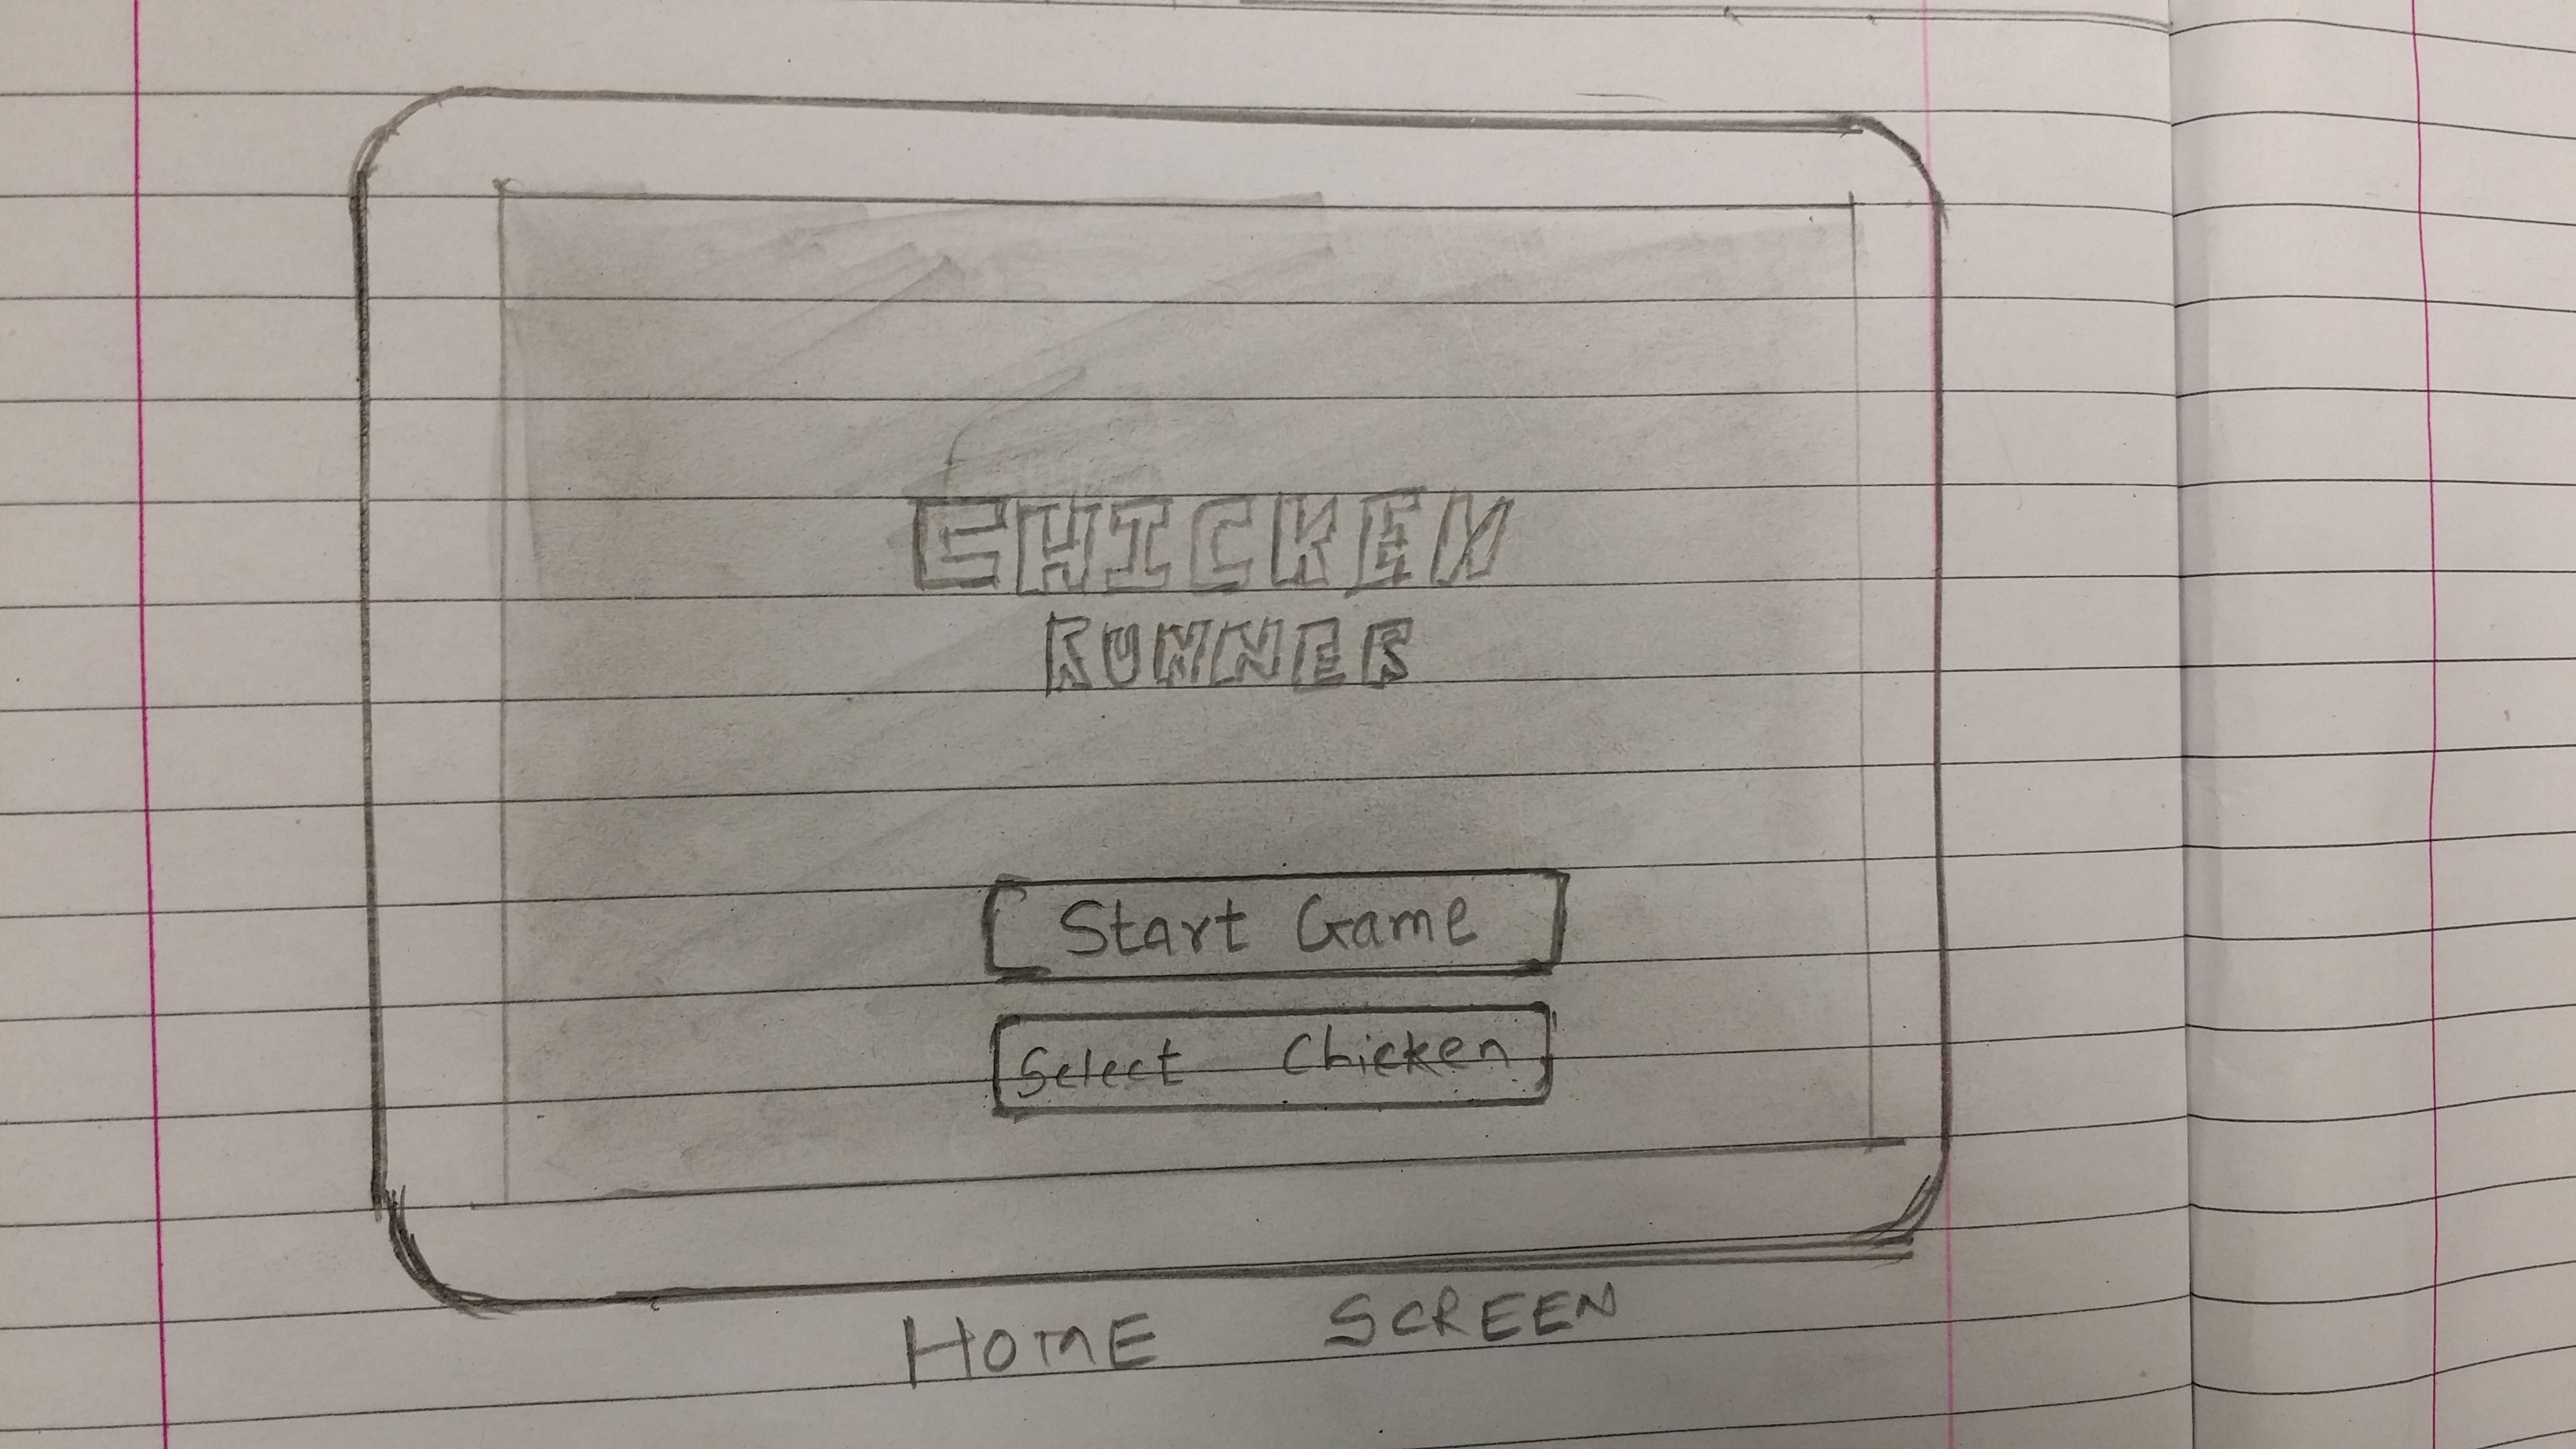 CHICKEN
RUNNER
Start Game
Select Chicken
HOME SCREEN